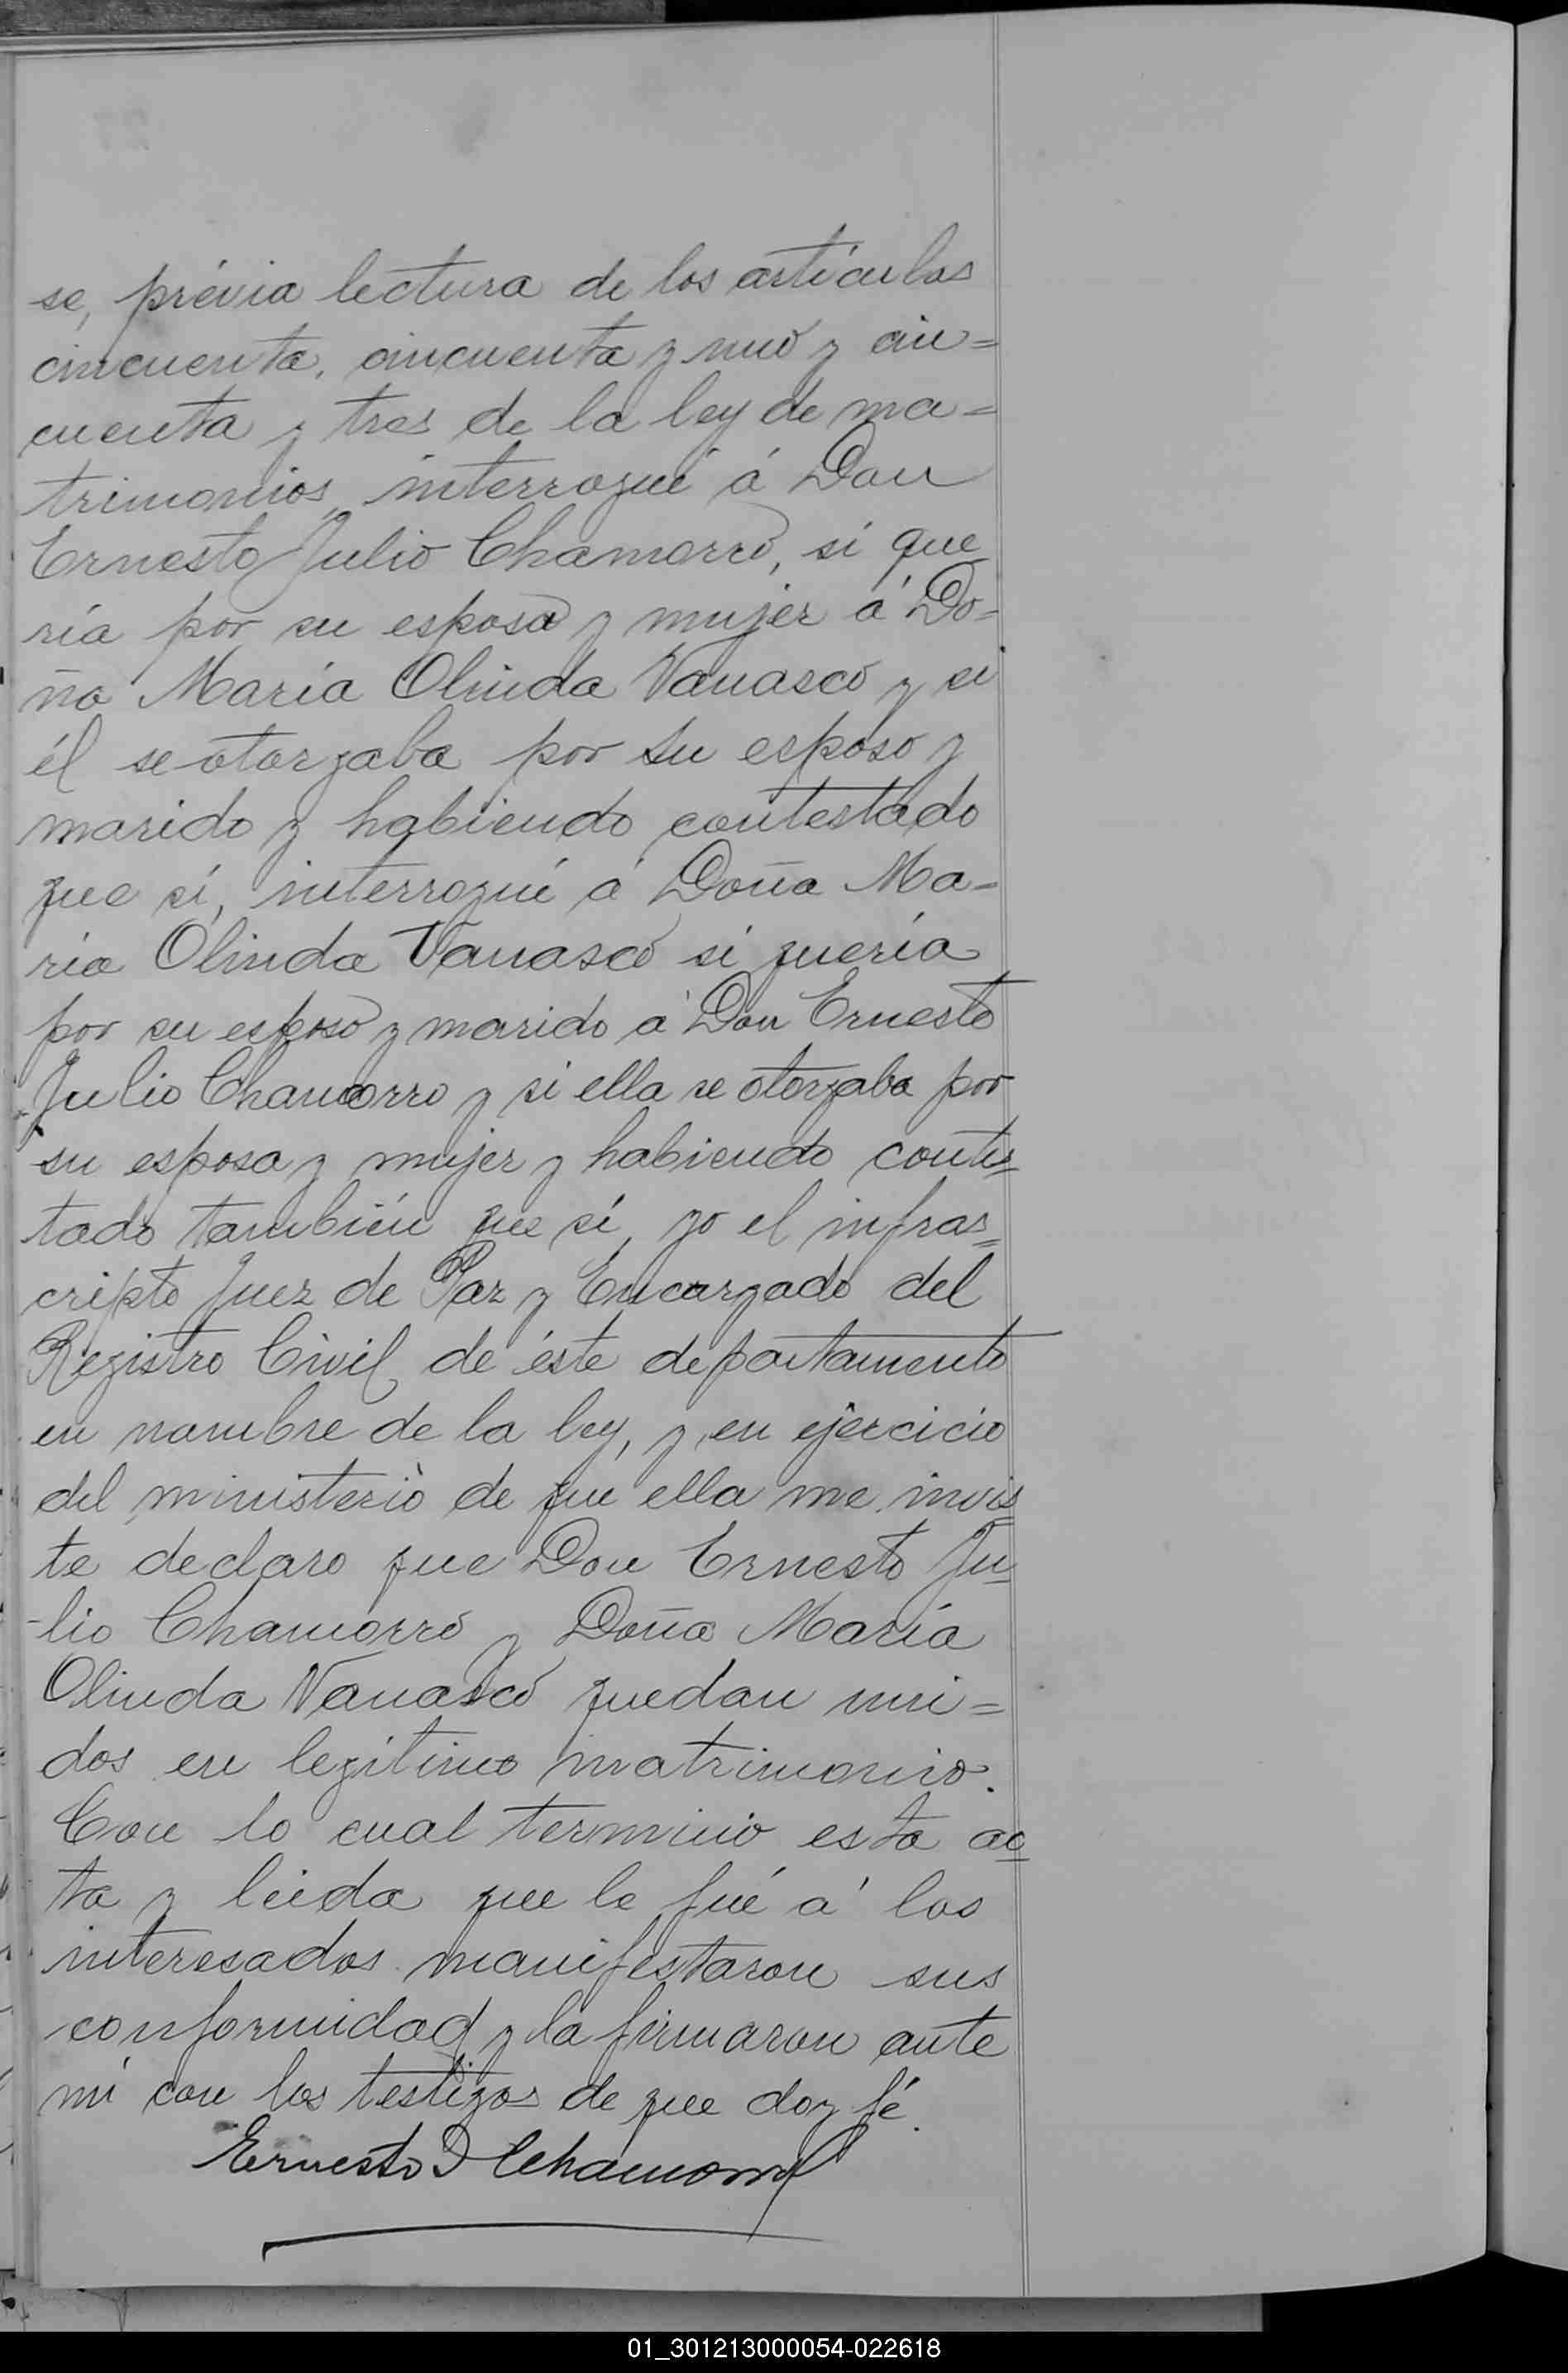 se, prévia lectura de los artículos
cincuenta, cincuenta y uno y cin=
cuenta y tres de la ley de ma=
trimonios, interrogué á Don
Ernesto Julio Chamorro, si que
ría por su esposa y mujer á Do=
ña María Olinda Vanasco y si
él se otorgaba por su esposo y
marido y habiendo contestado
que sí, interrogué á Doña Ma=
ría Olinda Vanasco si quería
por su esposo y marido á Don Ernesto
Julio Chamorro y si ella se otorgaba por
su esposa y mujer y habiendo contes=
tado también que sí, yo el infras=
cripto Juez de Paz y Encargado del
Registro Civil de éste departamento
en nombre de la ley, y en ejercicio
del ministerio de que ella me invis
te declaro que Don Ernesto Ju
-lio Chamorro y Doña María
Olinda Vanasco quedan uni=
dos en legítimo matrimonio.
Con lo cual terminó esta ac
ta y leida que le fué á los
interesados manifestaron sus
conformidad y la firmaron ante
mí con los testigos de que doy fé.
Ernesto J Chamorro
01_301213000054-022618